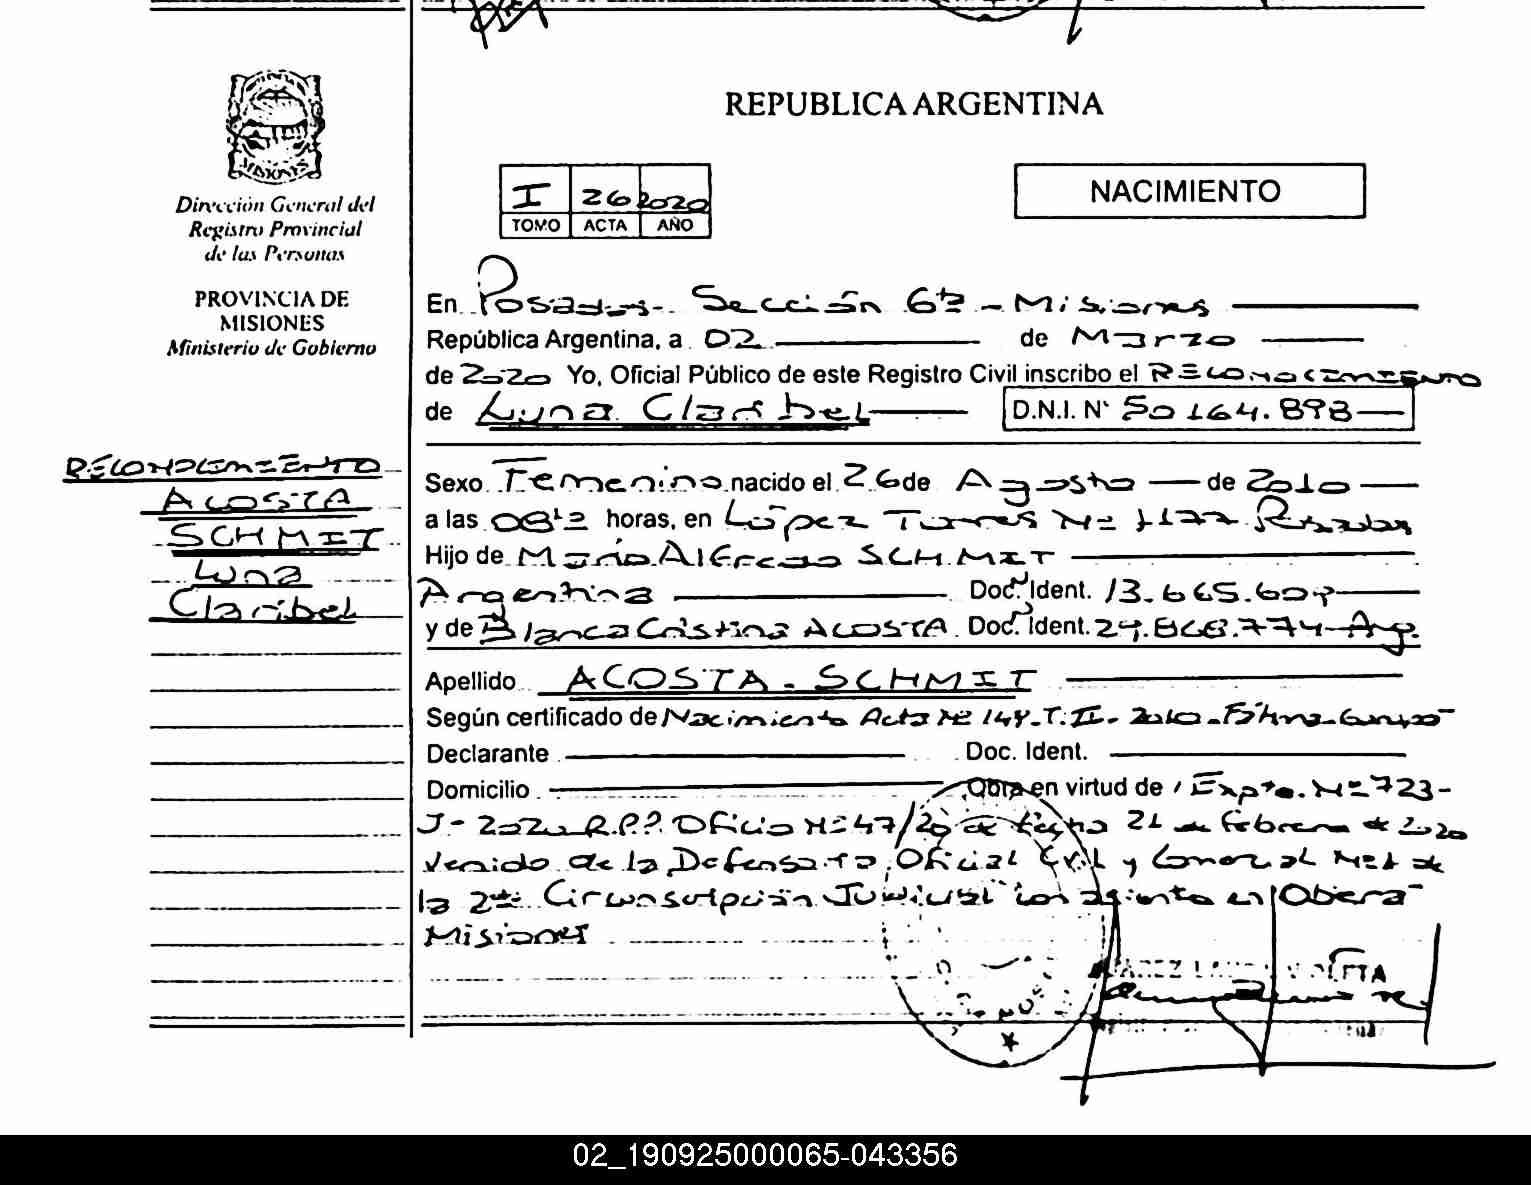 REPUBLICA ARGENTINA
MISIONES
Dirección General del
Registro Provincial
de las Personas
PROVINCIA DE
MISIONES
Ministerio de Gobierno
I 26 2020
TOMO ACTA AÑO
NACIMIENTO
En Posadas - Sección 6ta - Misiones
República Argentina, a 02 de Marzo
de 2020 Yo, Oficial Público de este Registro Civil inscribo el RECONOCIMIENTO
de Luna Claribel D.N.I. Nº 50.164.898
RECONOCIMIENTO
ACOSTA
SCHMIT
Luna
Claribel
Sexo Femenino nacido el 26 de Agosto de 2010
a las 08 horas, en López Torres Nº 1177 Posadas
Hijo de Mario Alfredo SCHMIT
Argentina Doc. Ident. 13.665.607
y de Blanca Cristina ACOSTA Doc. Ident. 29.868.774 Arg.
Apellido ACOSTA - SCHMIT
Según certificado de Nacimiento Acta Nº 149 - T. II - 2010 - Fátima - Garupá
Declarante Doc. Ident.
Domicilio Obra en virtud de Expte. Nº 723-
J- 2020 R.P.P. Oficio Nº 47/20 de fecha 21 de febrero de 2020
Venido de la Defensoría Oficial Civil y Comercial Nº 1 de
la 2da Circunscripción Judicial con asiento en Oberá
Misiones
02_190925000065-043356